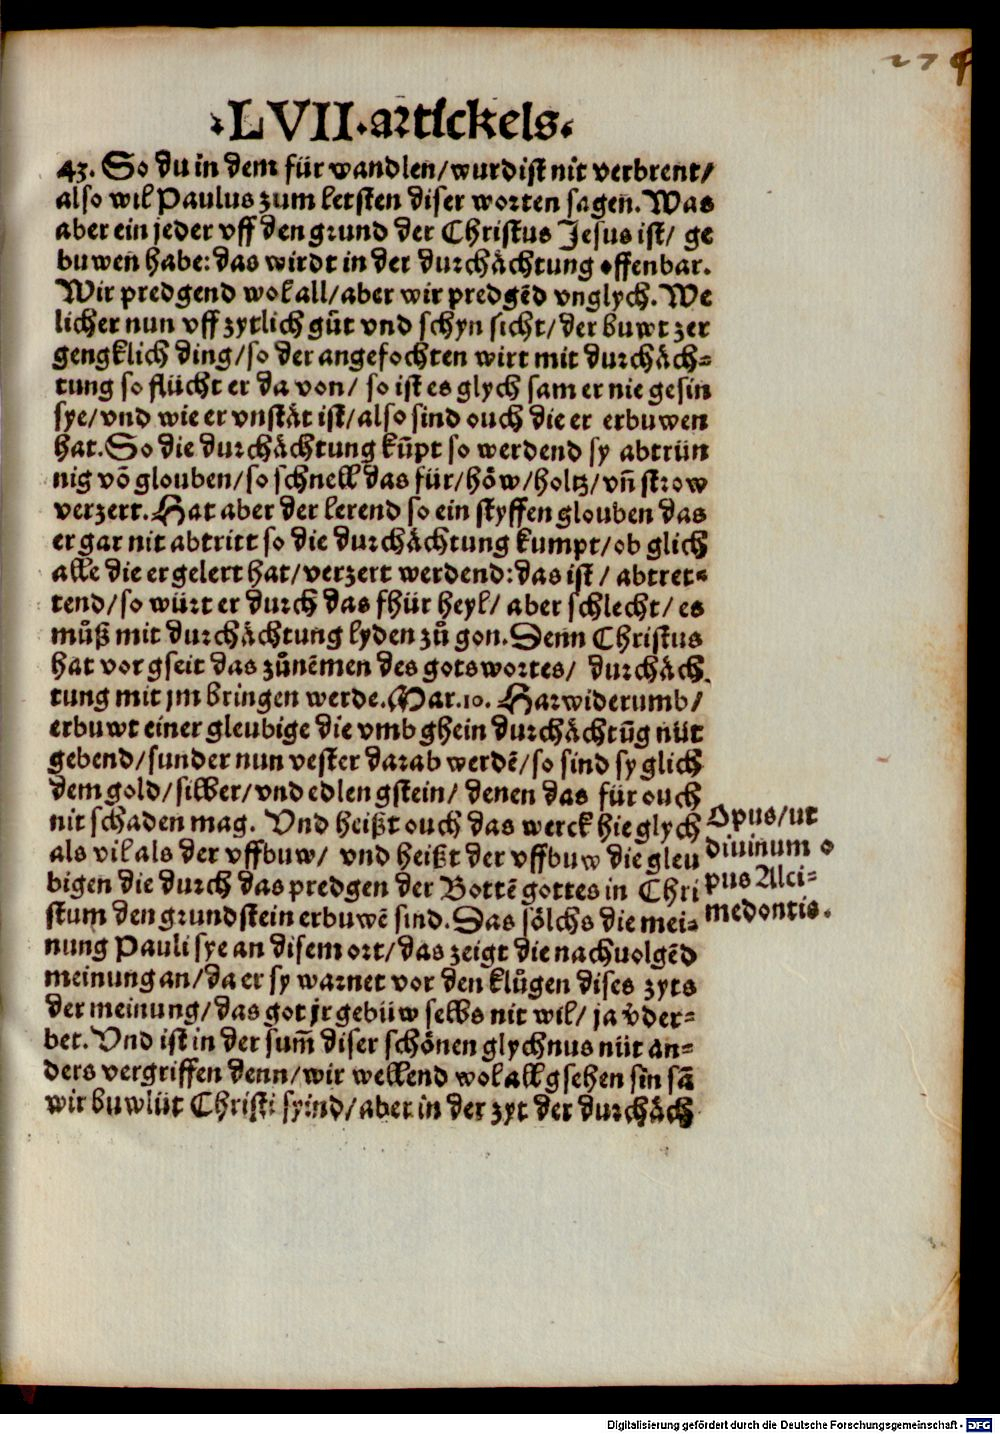 ·LVII·artickels·
43. So du in dem für wandlen/wurdist nit verbrent/
also wil Paulus zum letsten diser worten sagen. Was
aber ein jeder vff den grund der Christus Jesus ist/ ge
buwen habe: das wirdt in der durchächtung offenbar.
Wir predgend wol all/aber wir predgēd vnglych. We
licher nun vff zytlich gůt vnd schyn sicht/der buwt zer
gengklich ding/so der angefochten wirt mit durchäch-
tung so flücht er da von/ so ist es glych sam er nie gesin
sye/vnd wie er vnstät ist/also sind ouch die er erbuwen
hat. So die durchächtung kūpt so werdend sy abtrün
nig vō glouben/so schnell das für/höw/holtz/vn̄ strow
verzert. Hat aber der lerend so ein styffen glouben das
er gar nit abtritt so die durchächtung kumpt/ob glich
alle die er gelert hat/verzert werdend: das ist/ abtret-
tend/so würt er durch das fhür heyl/ aber schlecht/ es
můß mit durchächtung lyden zů gon. Denn Christus
hat vor gseit das zůnēmen des gotswortes/ durchäch
tung mit jm bringen werde. Mar.10. Harwiderumb/
erbuwt einer gleubige die vmb ghein durchächtūg nüt
gebend/sunder nun vester darab werdē/so sind sy glich
dem gold/silber/vnd edlen gstein/ denen das für ouch
nit schaden mag. Vnd heißt ouch das werck hie glych
als vil als der vffbuw/ vnd heißt der vffbuw die gleu
bigen die durch das predgen der Bottē gottes in Chri
stum den grundstein erbuwē sind. Das sölchs die mei-
nung Pauli sye an disem ort/das zeigt die nachuolgēd
meinung an/da er sy warnet vor den klůgen dises zyts
der meinung/das got jr gebüw selbs nit wil/ ja v̄der-
bet. Vnd ist in der sum̄ diser schönen glychnus nüt an-
ders vergriffen denn/wir wellend wol all gsehen sin sā
wir buwlüt Christi syind/aber in der zyt der durchäch
Opus/ut
diuinum o
pus Alci-
medontis.
Digitalisierung gefördert durch die Deutsche Forschungsgemeinschaft - DFG